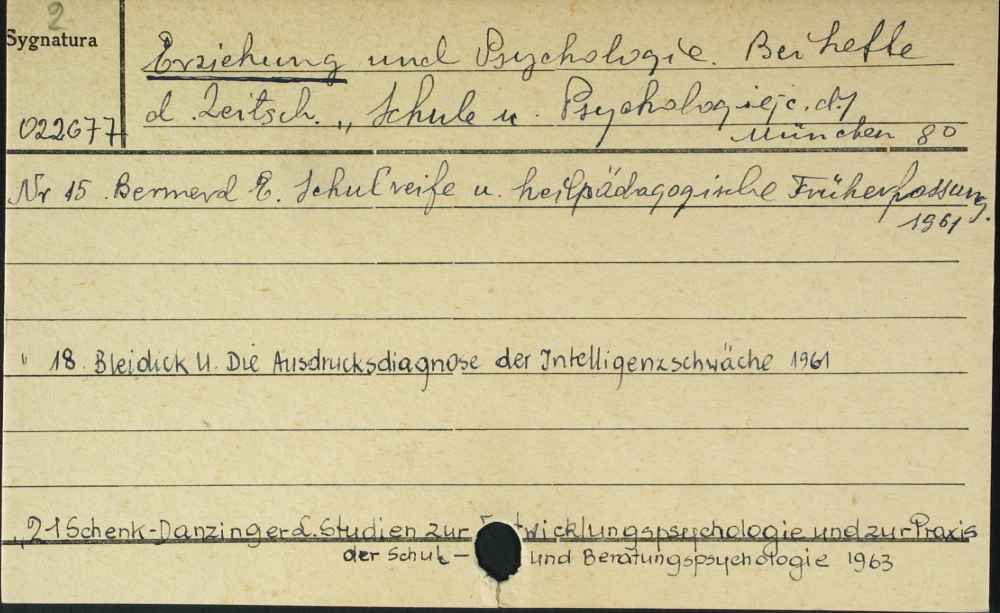 2
Sygnatura
022677
Erziehung und Psychologie. Beihefte
d. Zeitsch. „Schule u. Psychologie[c.d.]
München 8°
Nr 15. Bermerd E. Schulreife u. heilpädagogische Früherfassung.
1961
" 18. Bleidick U. Die Ausdrucksdiagnose der Intelligenzschwäche 1961
„ 21 Schenk-Danzinger L. Studien zur wicklungspsychologie und zur Praxis
der Schul- und Beratungspsychologie 1963